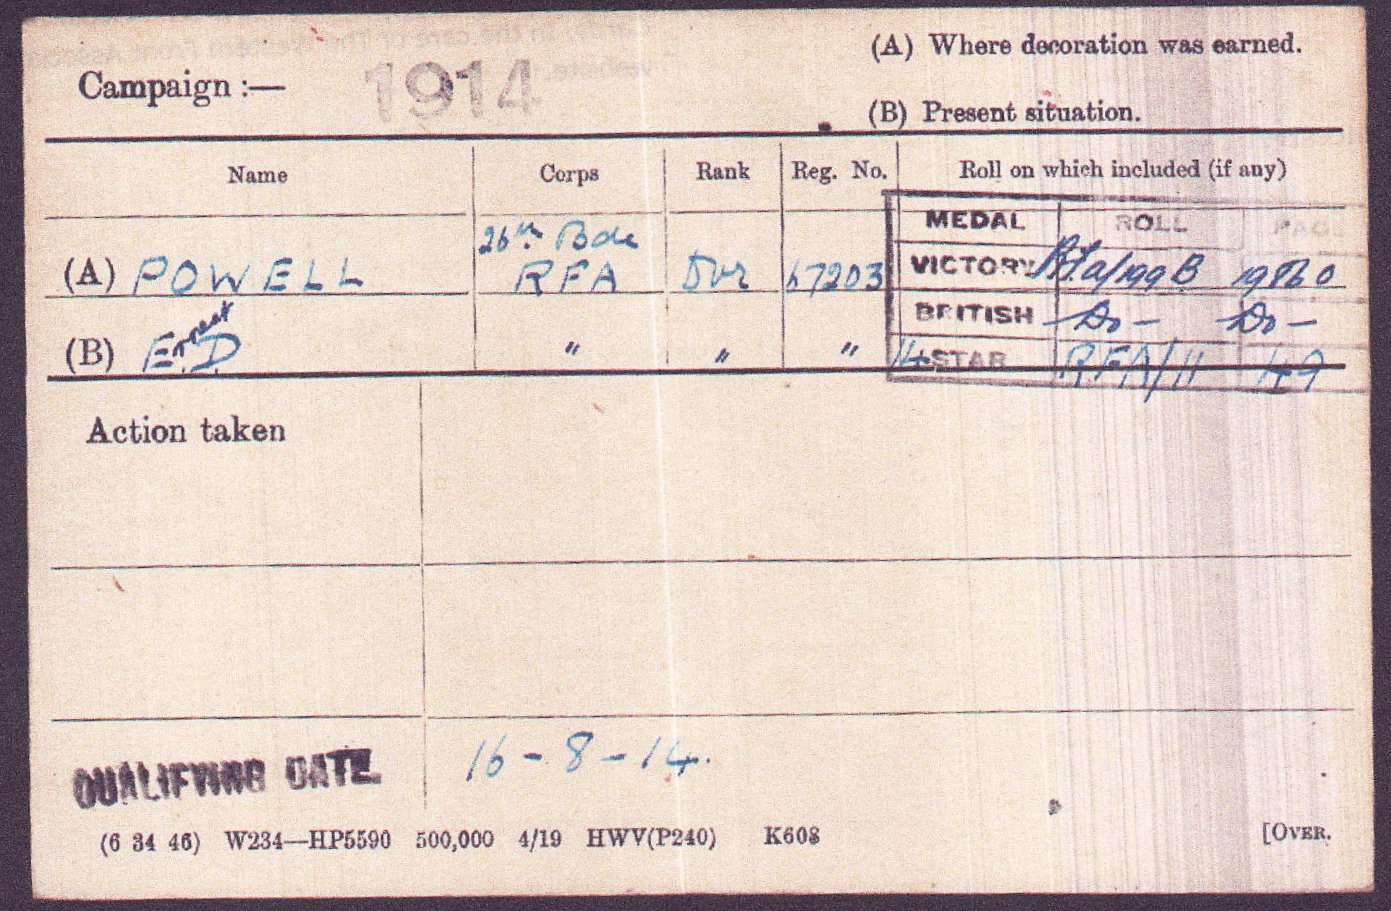 (A) Where decoration was earned.
Campaign :— 1914
(B) Present situation.
Name Corps Rank Reg. No. Roll on which included (if any)
MEDAL ROLL PAGE
26th Bde
(A) POWELL RFA Dvr 67203 VICTORY 199B
BRITISH Do — Do —
Ernest
(B) E. D " " " 14 STAR RFA/11 49
Action taken
QUALIFYING DATE 16-8-14.
(6 34 46) W234—HP5590 500,000 4/19 HWV(P240) K608 [OVER.